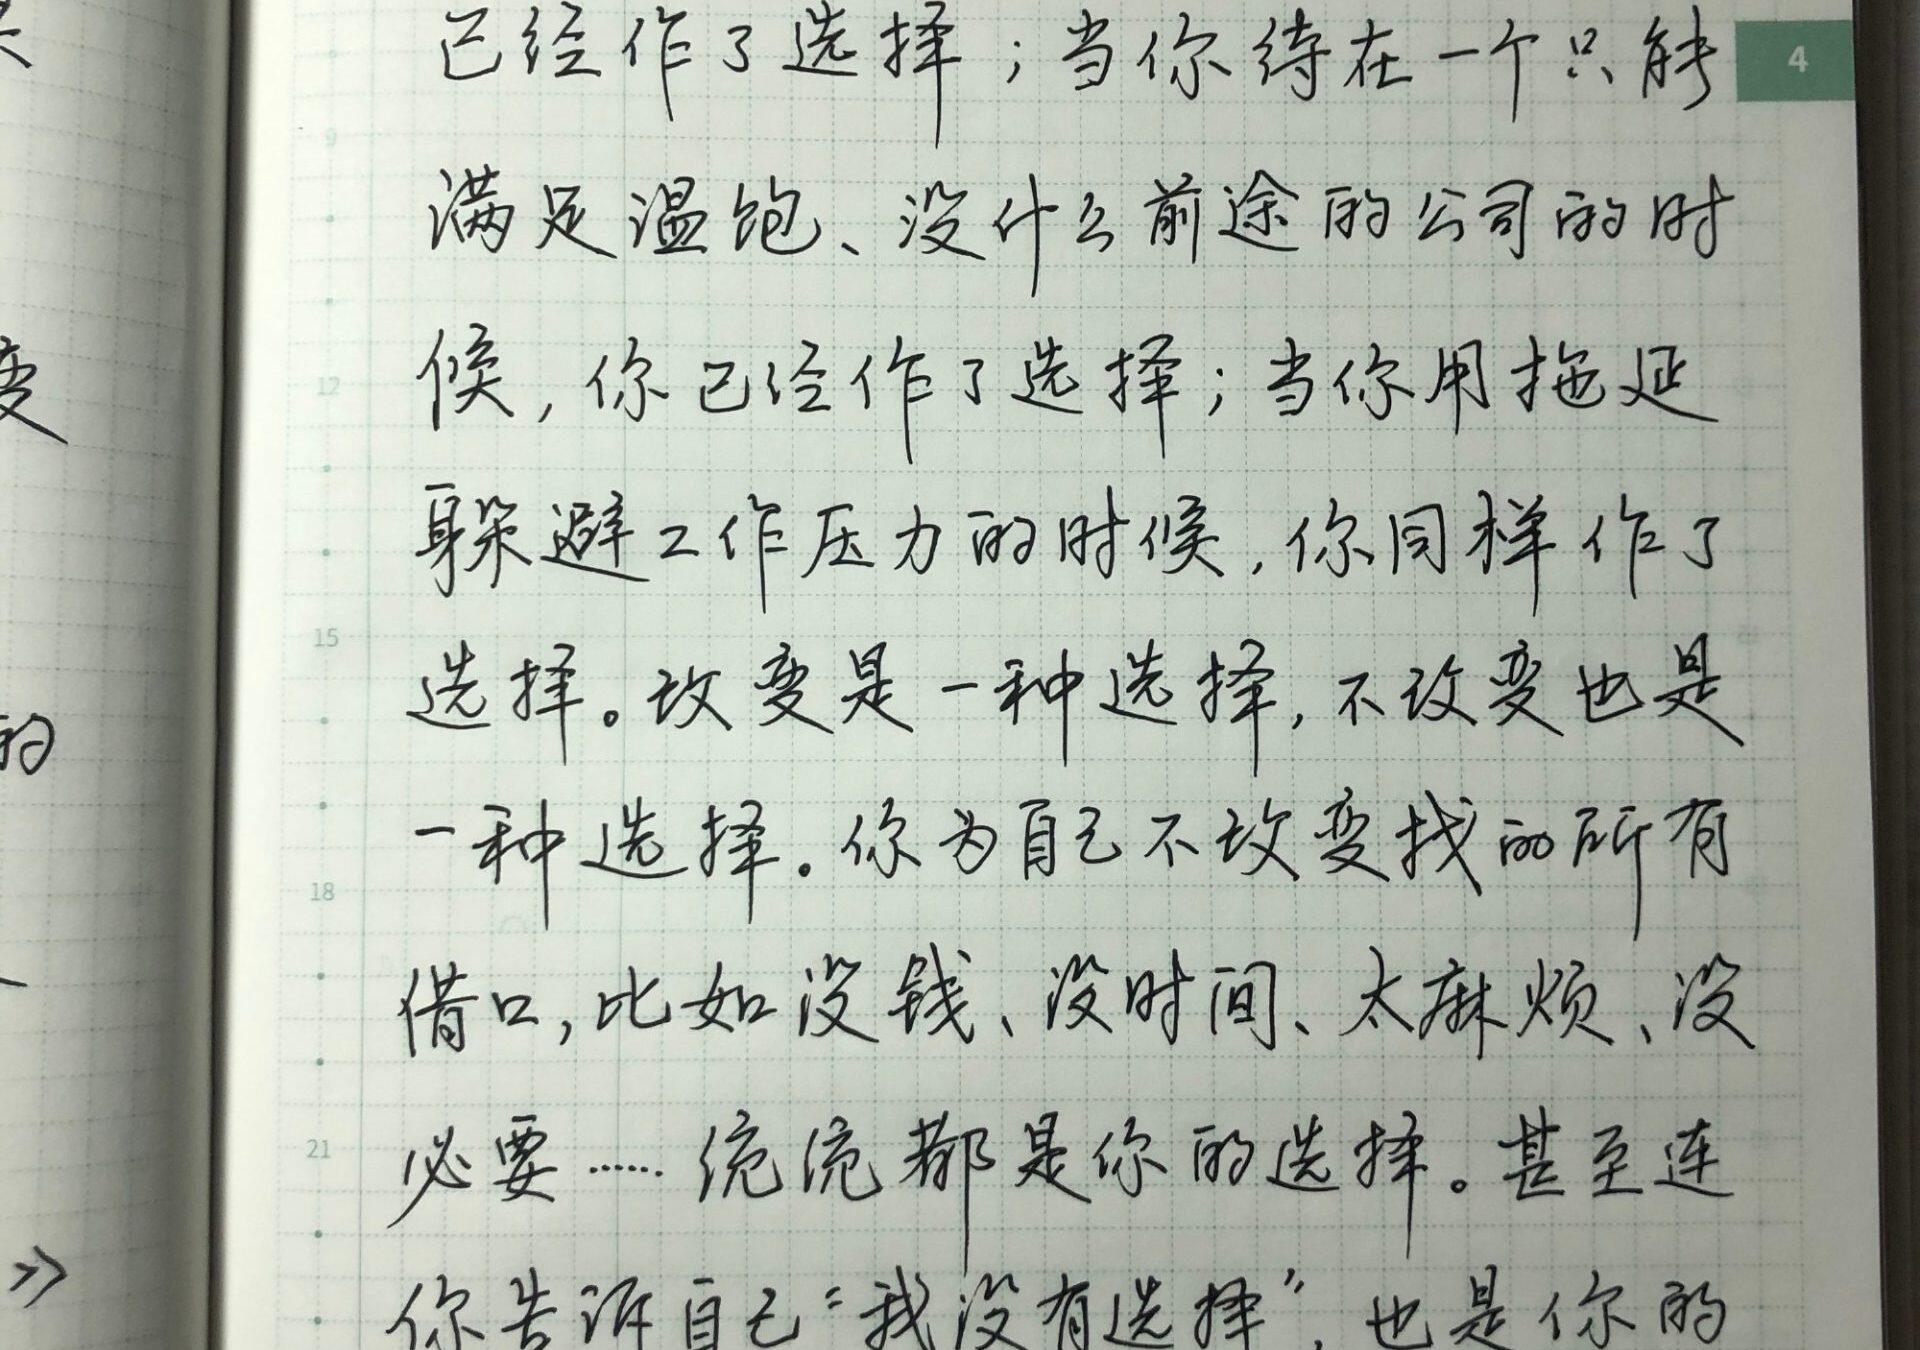 已经作了选择；当你待在一个只能
4
满足温饱、没什么前途的公司的时
候，你已经作了选择；当你用拖延
12
躲避工作压力的时候，你同样作了
15
选择。改变是一种选择，不改变也是
一种选择。你为自己不改变找的所有
18
借口，比如没钱、没时间、太麻烦、没
必要……统统都是你的选择。甚至连
21
你告诉自己“我没有选择”，也是你的
变
的
》